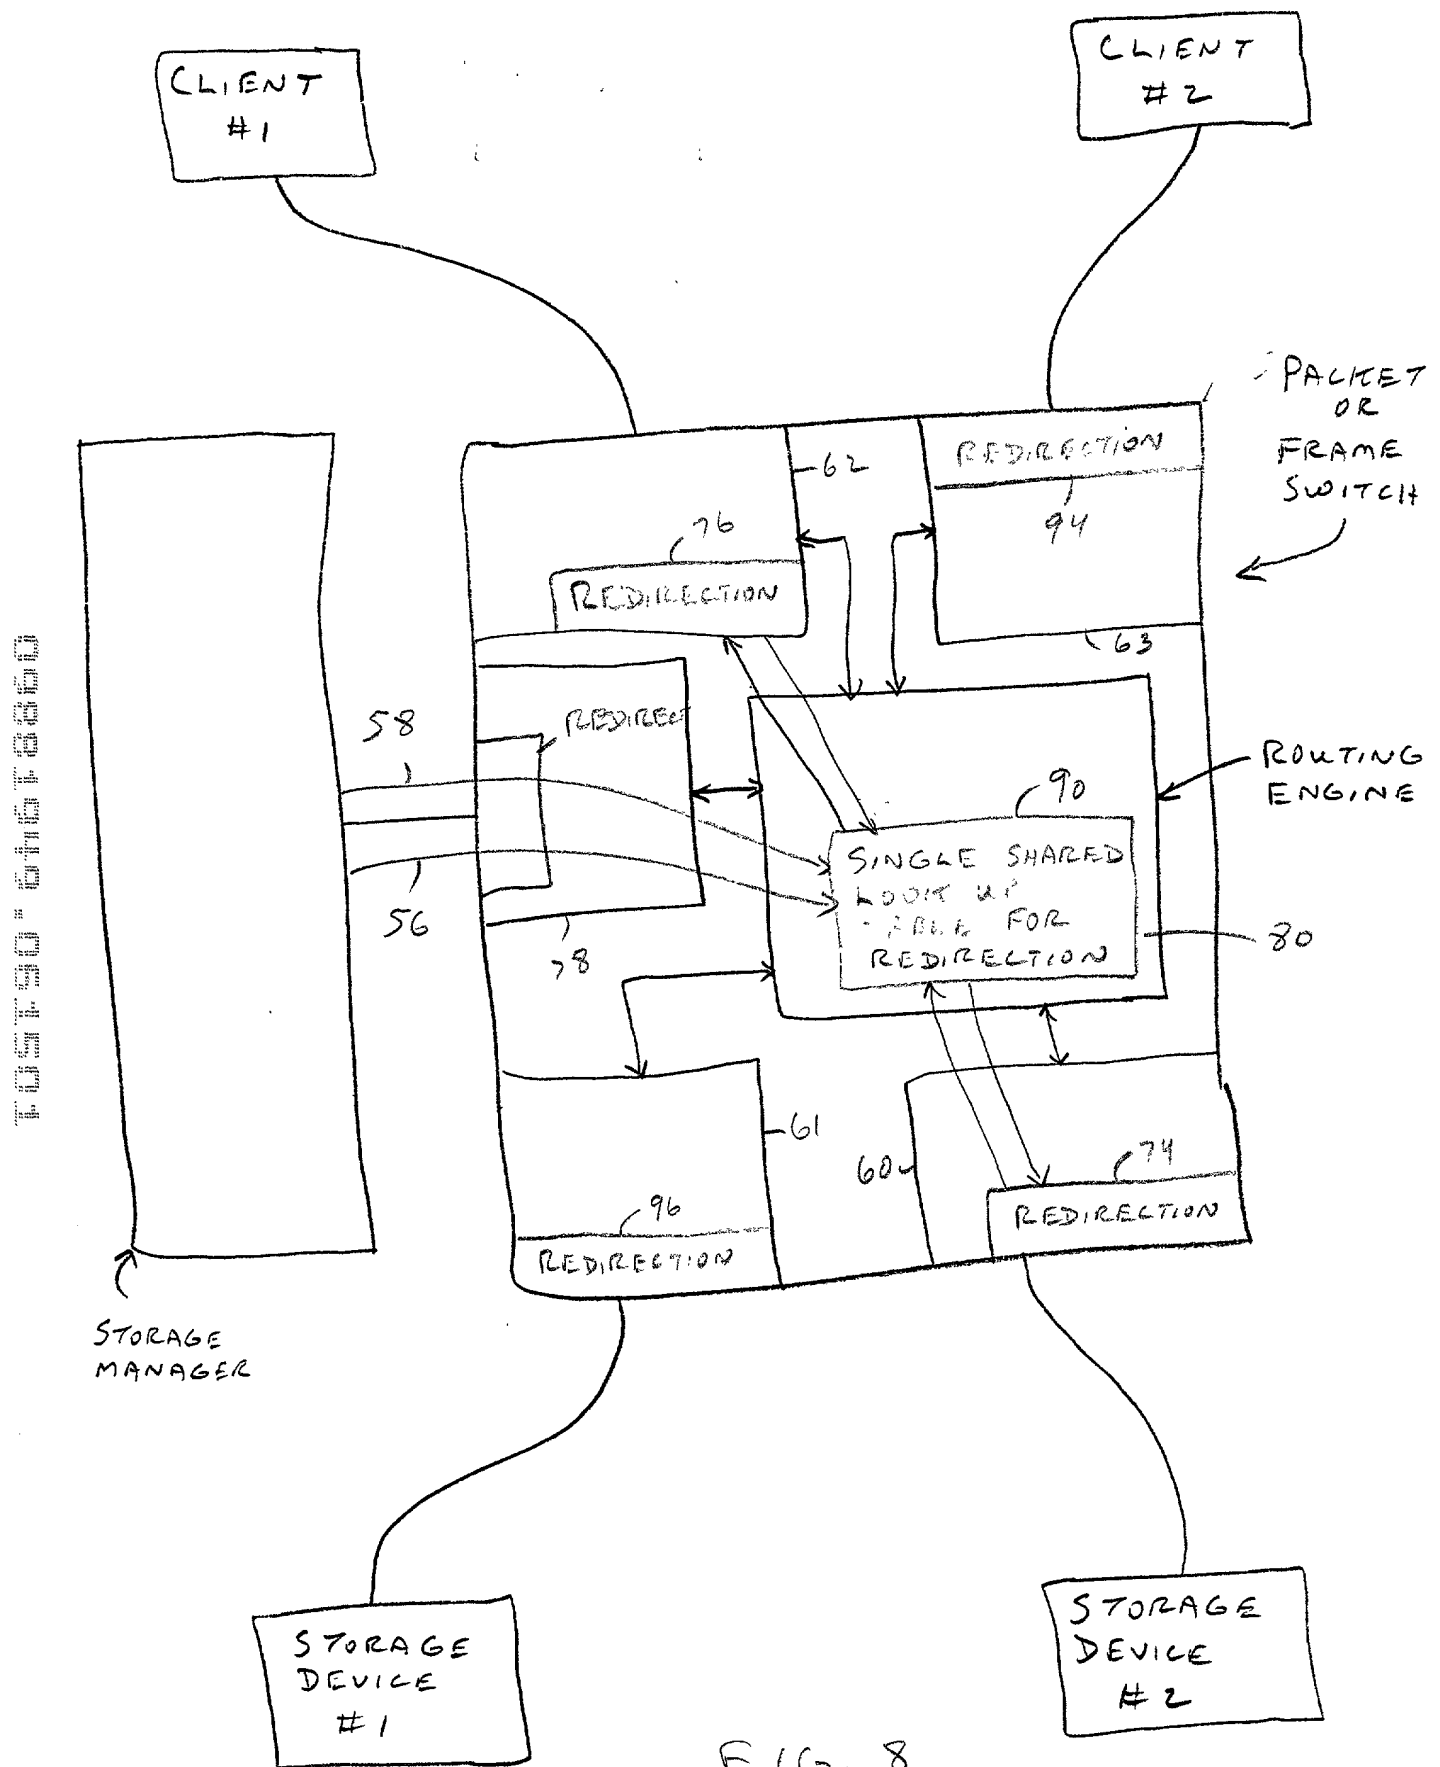 CLIENT
#1
CLIENT
#2
PACKET
OR
FRAME
SWITCH
62
REDIRECTION
94
76
REDIRECTION
63
58
REDIRECT
ROUTING
ENGINE
90
SINGLE SHARED
LOOK UP
TABLE FOR
REDIRECTION
80
56
78
61
60
74
REDIRECTION
96
REDIRECTION
STORAGE
MANAGER
STORAGE
DEVICE
#1
STORAGE
DEVICE
#2
FIG. 8